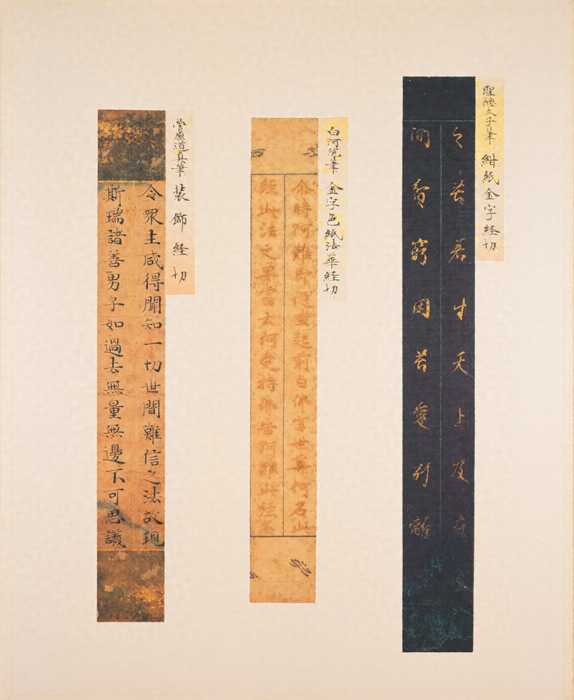 聖徳太子筆 紺紙金字経切
之苦若生天上及在人
間貧窮困苦愛別離
白河院筆 金字色紙法華経切
尒時阿難即従坐起前白佛言世尊何名此
經此法之要當云何受持佛告阿難此經名
菅原道真筆 装飾経切
令眾生咸得聞知一切世間難信之法故現
斯瑞諸善男子如過去無量無邊不可思議